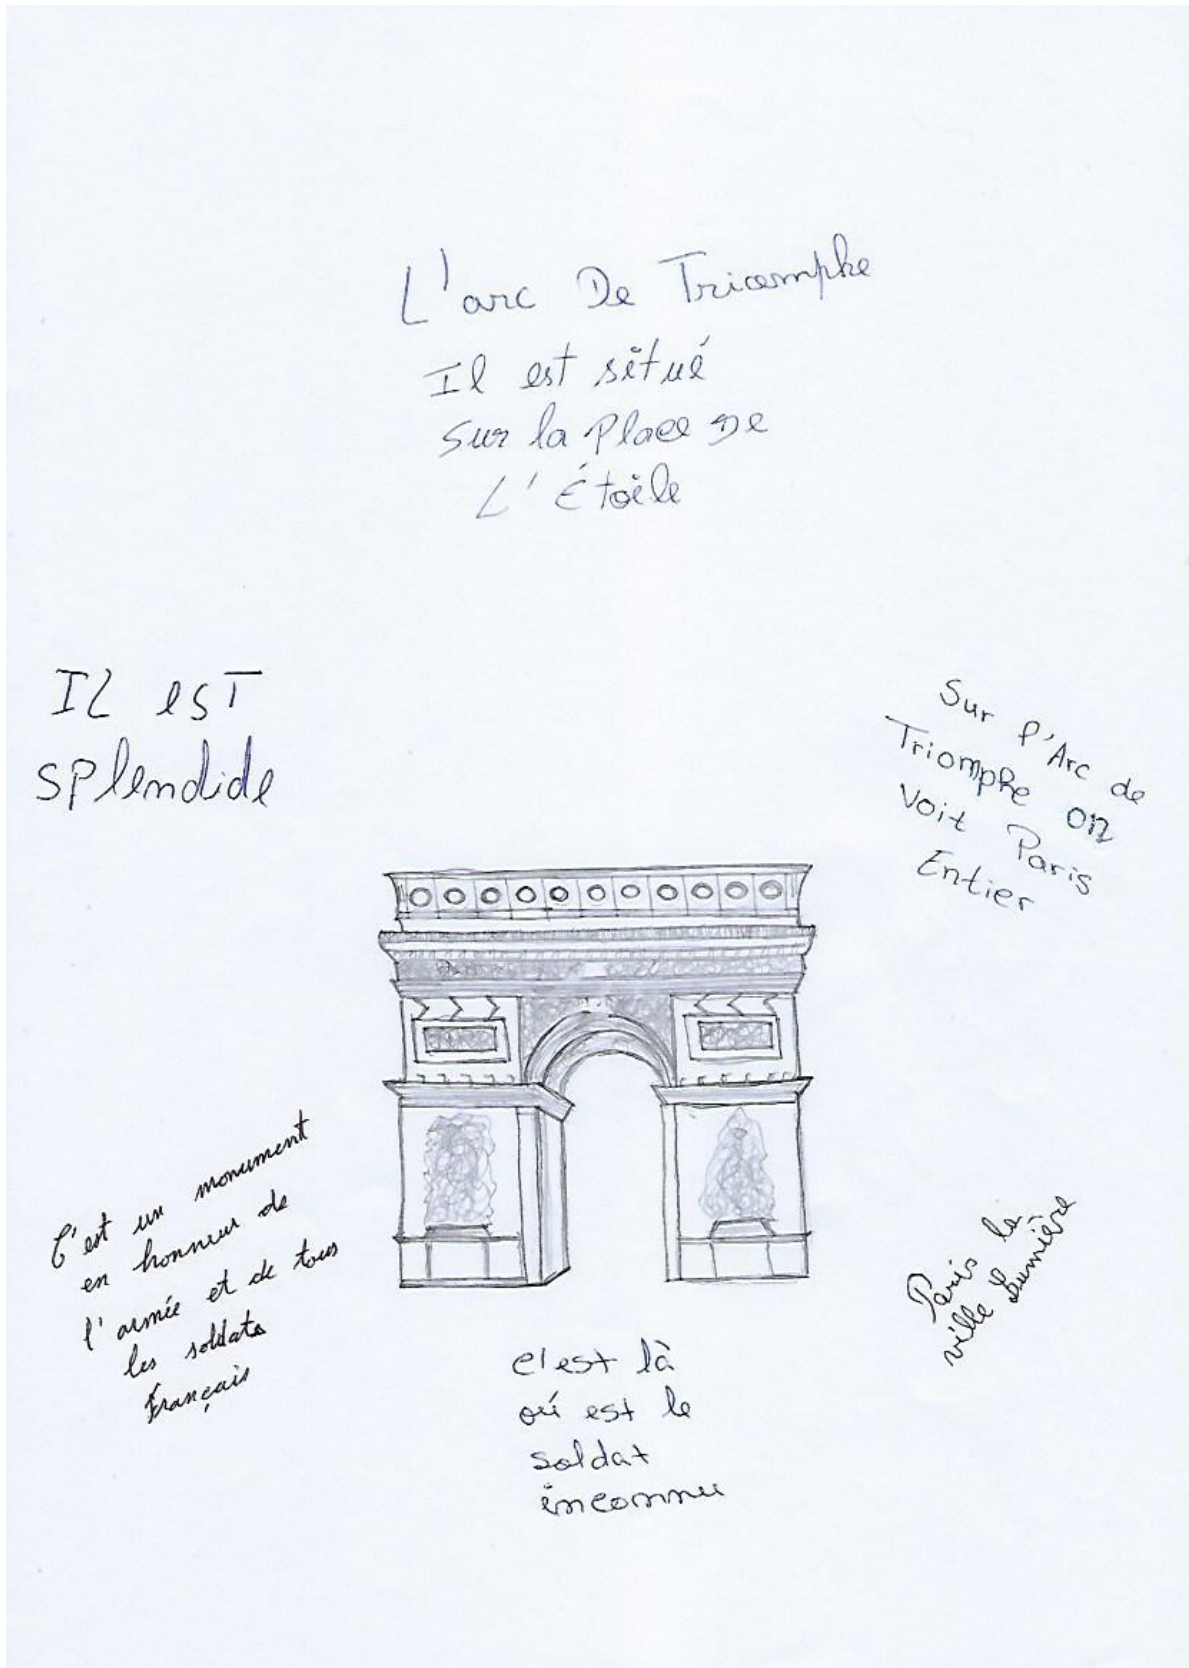 L'arc De Triomphe
Il est situé
sur la Place De
L'Étoile
Il est
splendide
Sur l'Arc de
Triomphe on
Voit Paris
Entier
C'est un monument
en honneur de
l'armée et de tous
les soldats
français
Paris la
ville Lumière
c'est là
où est le
soldat
inconnu